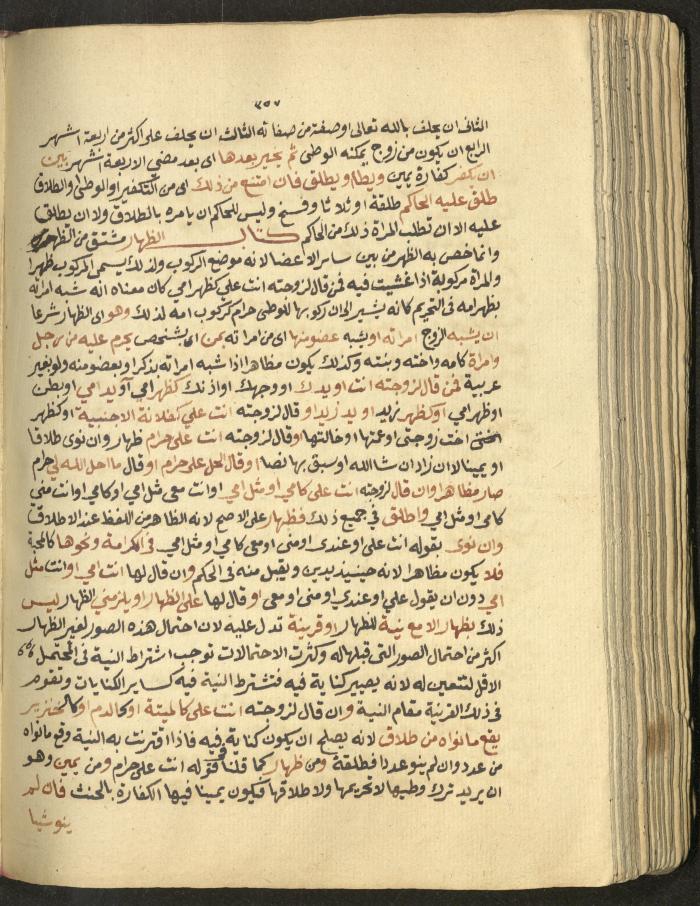 ٣٥٧
الثانى ان يحلف بالله تعالى او صفة من صفاته الثالث ان يحلف على اكثر من اربعة اشهر
الرابع ان يكون من زوج يمكنه الوطى ثم يخير بعدها اى بعد مضى الاربعة اشهر بين
ان يكفر كفارة يمين ويطا ويطلق فان امتنع من ذلك اى من التكفير او الوطى والطلاق
طلق عليه الحاكم طلقة او ثلاثا وفسخ وليس للحاكم ان يامره بالطلاق ولا ان يطلق
عليه الا ان تطلب المراة ذلك من الحاكم كتاب الظهار مشتق من الظهر
وانما خص به الظهر من بين ساير الاعضا لانه موضع الركوب ولذلك يسمى المركوب ظهرا
والمراة مركوبة اذا غشيت فيه فمن قال لزوجته انت على كظهر امي كان معناه انه شبه امراته
بظهر امه فى التحريم كانه يشير الى ان ركوبها للوطى حرام كركوب امه لذلك وهو اى الظهار شرعا
ان يشبه الزوج امراته او يشبه عضو منها اى من امراته بمن اى بشخص يحرم عليه من رجل
وامراة كامه واخته وبنته وكذلك يكون مظاهرا اذا شبه امراته بذكر او بعضو منه ولو بغير
عربية فمن قال لزوجته انت او يدك او وجهك او اذنك كظهر امي او يد امي او بطن
او ظهر امي او كظهر زيد او يد زيد او قال لزوجته انت على كفلانة الاجنبية او كظهر
اخت زوجتى او عمتها او خالتها او قال لزوجته انت على حرم ظهار وان نوى طلاقا
او يمينا لا ان زاد ان شا الله او سبق بها نصا او قال الحل على حرم او قال ما احل الله لى حرم
صار مظاهرا وان قال لزوجته انت على كامي او مثل امي او انت معى مثل امى او كامى او انت منى
كامى او مثل امي واطلق فى جميع ذلك فظهار على الاصح لانه الظاهر من اللفظ عند الاطلاق
وان نوى بقوله انت على او عندى او منى او معى كامى او مثل امى فى الكرامة ونحوها كالمحبة
فلا يكون مظاهرا لانه حينيذ يدين ويقبل منه فى الحكم وان قال لها انت امى او انت مثل
امي دون ان يقول على او عندى او منى او معى او قال لها على الظهار او يلزمنى الظهار ليس
ذلك بظهار الا مع نية للظهار او قرينة تدل عليه لان احتمال هذه الصور لغير الظهار
اكثر من احتمال الصور التى قبلها له وكثرت الاحتمالات توجب اشتراط النية فى المحتمل
الاقل لتتعين له لانه يصير كناية فيه فتشترط النية فيه كساير الكنايات وتقوم
فى ذلك القرينة مقام النية وان قال لزوجته انت على كالميتة او كالدم او كالخنزير
يقع ما نواه من طلاق لانه يصلح ان يكون كناية فيه فاذا اقترنت به النية وقع ما نواه
من عدد وان لم ينو عددا فطلقة ومن ظهار كما قلنا فى قوله انت على حرام ومن يمين وهو
ان يريد ترك وطيها لا تحريمها ولا طلاقها فيكون يمينا فيها الكفارة بالحنث فان لم
ينو شيا